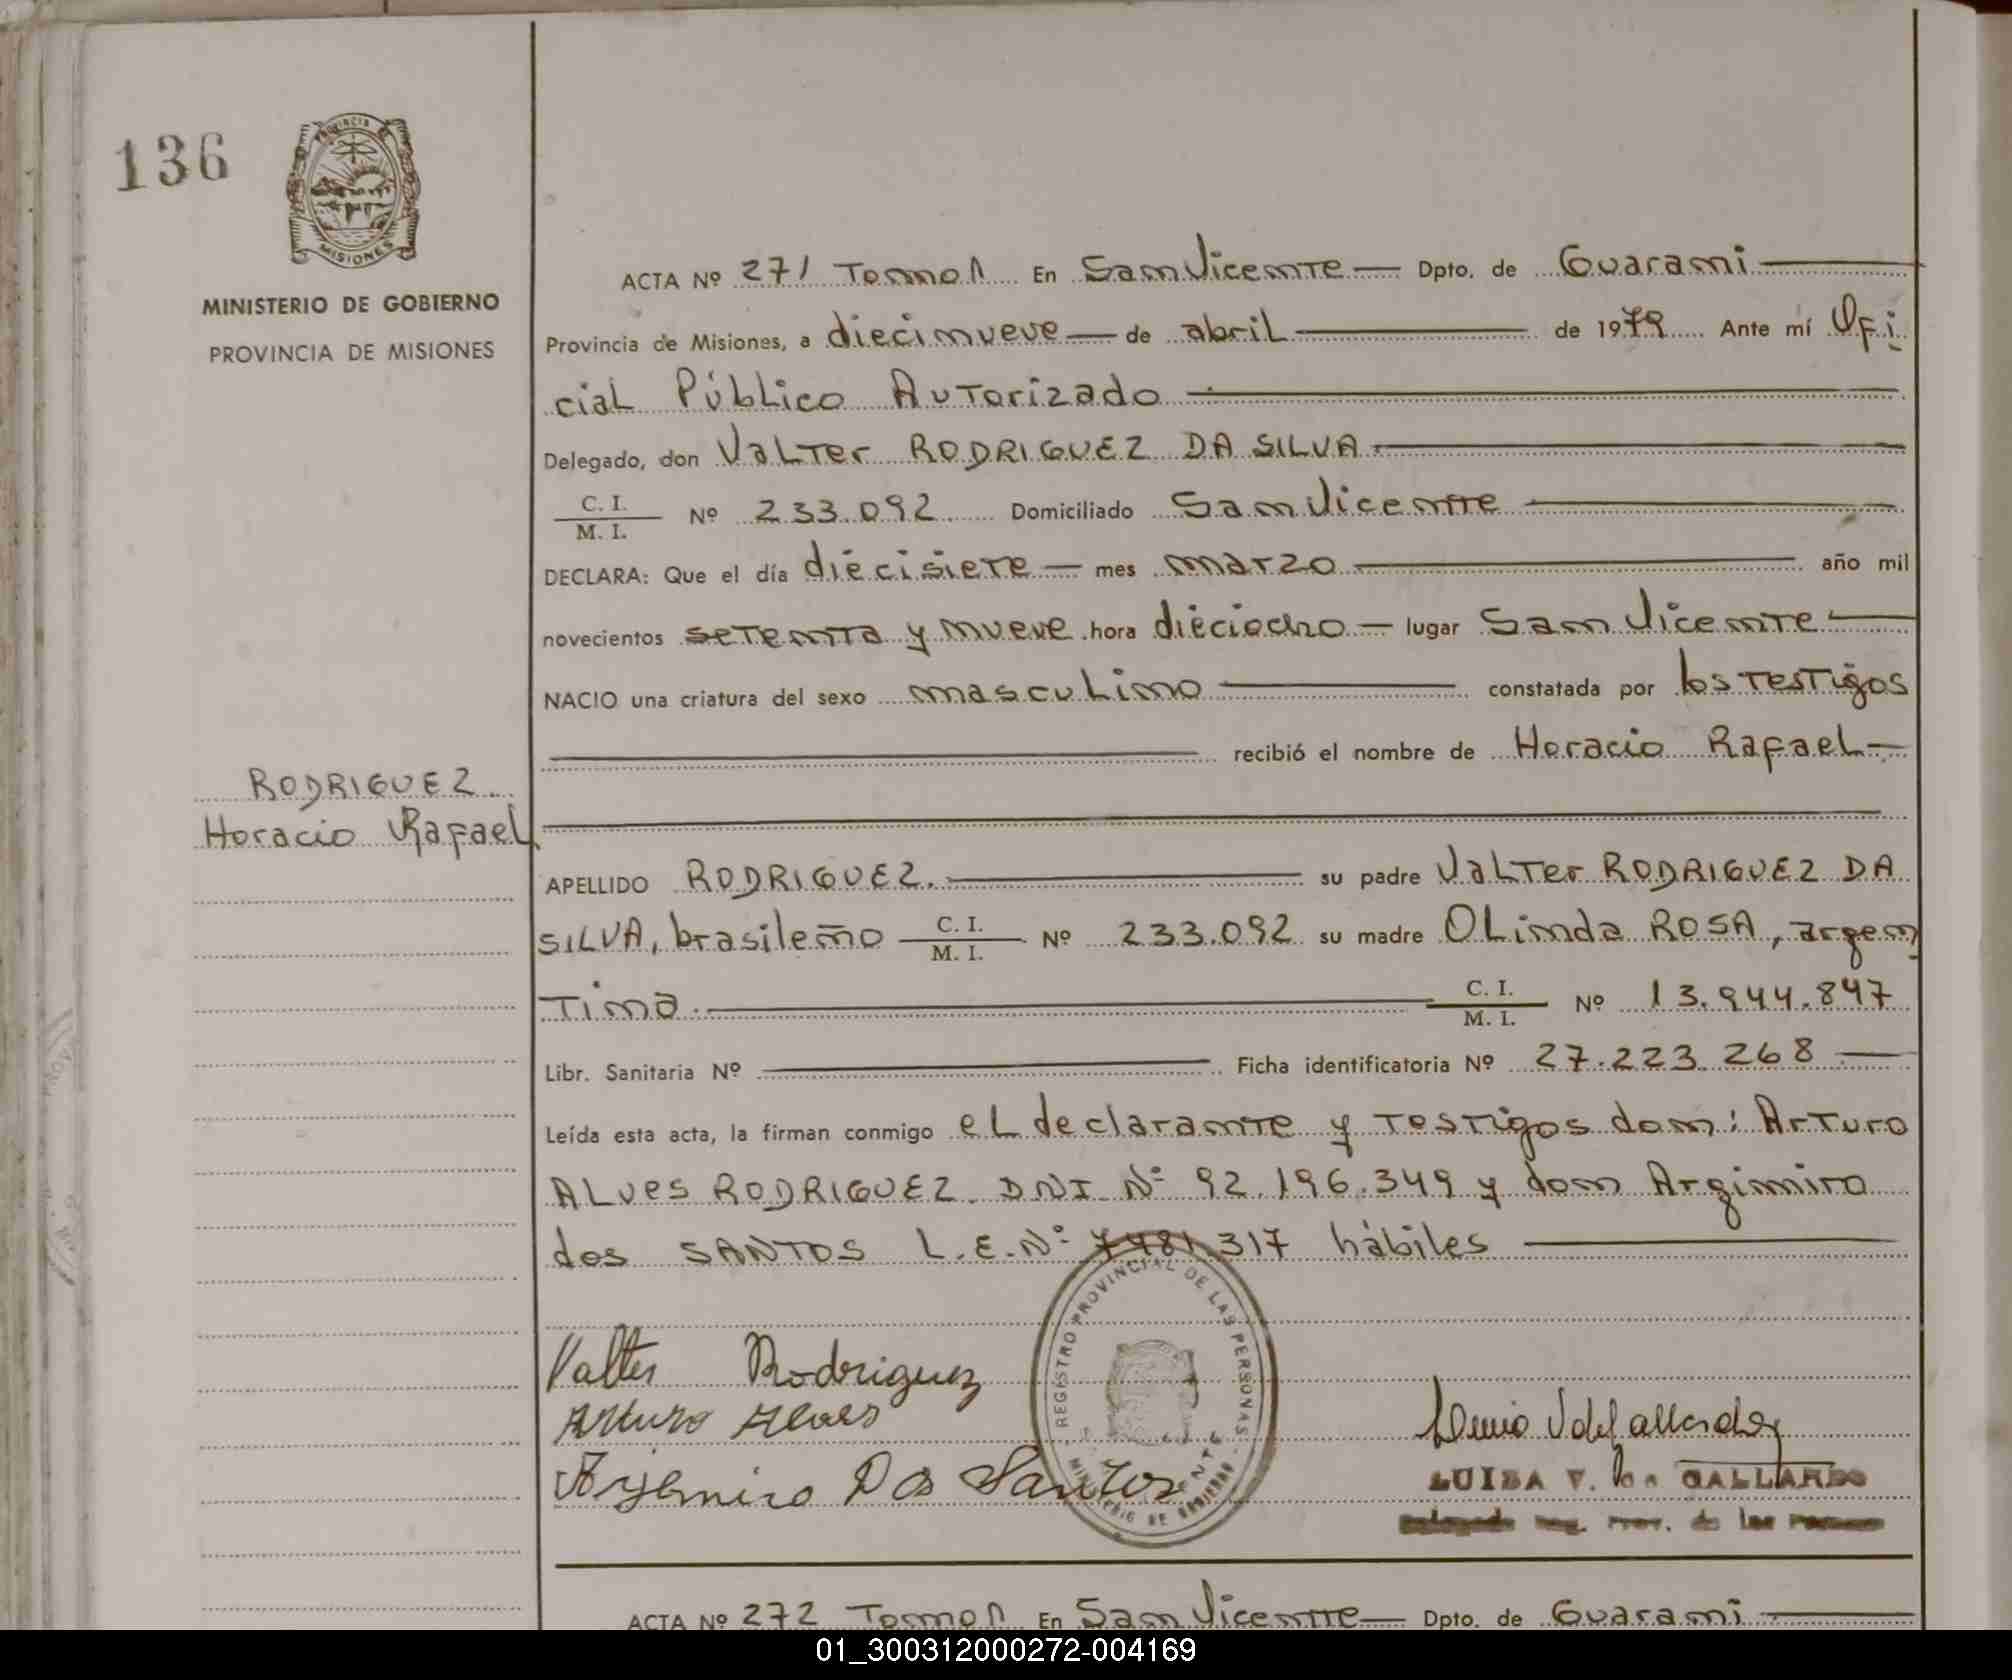 136
PROVINCIA DE
MISIONES
MINISTERIO DE GOBIERNO
PROVINCIA DE MISIONES
ACTA Nº 271 Tomo I En San Vicente Dpto. de Guarani
Provincia de Misiones, a diecinueve de abril de 1979 Ante mí Ofi
cial Público Autorizado
Delegado, don Valter RODRIGUEZ DA SILVA
C. I.
M. I. Nº 233.092 Domiciliado San Vicente
DECLARA: Que el día diecisiete mes marzo año mil
novecientos setenta y nueve hora dieciocho lugar San Vicente
NACIO una criatura del sexo masculino constatada por los testigos
recibió el nombre de Horacio Rafael
RODRIGUEZ
Horacio Rafael
APELLIDO RODRIGUEZ. su padre Valter RODRIGUEZ DA
SILVA, brasileño C. I. M. I. Nº 233.092 su madre Olinda ROSA, argen
tina C. I. M. I. Nº 13.944.847
Libr. Sanitaria Nº Ficha identificatoria Nº 27.223.268
Leída esta acta, la firman conmigo el declarante y testigos don: Arturo
Alves RODRIGUEZ DNI Nº 92.196.349 y don Argimiro
dos SANTOS L.E.Nº 7481.317 hábiles
REGISTRO PROVINCIAL DE LAS PERSONAS
Valter Rodriguez
Arturo Alves
Argemiro Dos Santos
LUISA V. de GALLARDO
ACTA Nº 272 Tomo I En San Vicente Dpto. de Guarani
01_300312000272-004169